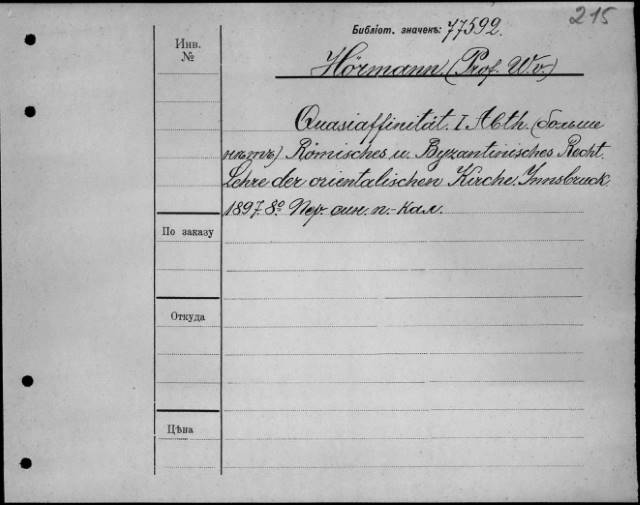 215
Библіот. значекъ: 77592.
Инв.
№
Hörmann (Prof. W. v.)
Quasiaffinität. I Abth. (больше
нѣтъ) Römisches u. Byzantinisches Recht.
Lehre der orientalischen Kirche. Innsbruck
1897. 8º Пер. син. п.-кал.
По заказу
Откуда
Цѣна